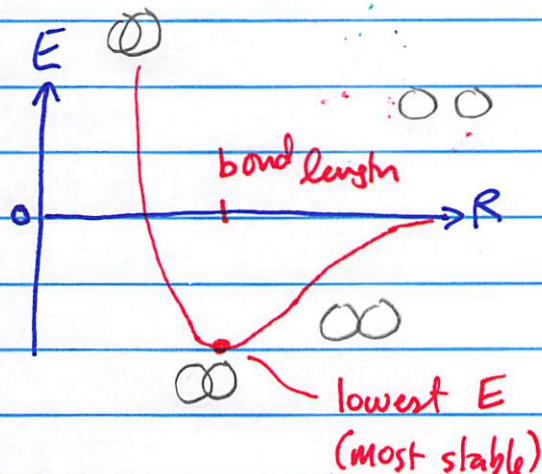 E
bond length
0
R
lowest E
(most stable)